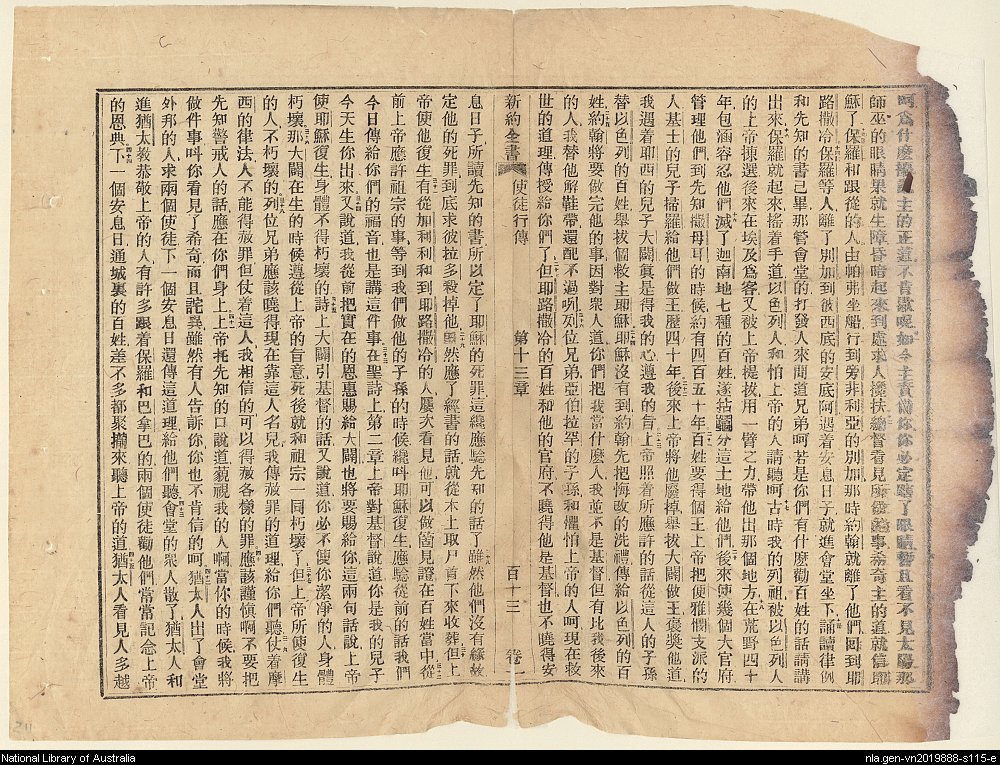 呵爲什麼攪亂主的正道不肯歇呢如今主責備你你必定瞎了眼睛暫且看不見太陽那
師巫的眼睛果就生障昏暗起來到處求人攙扶總督看見所做的事希奇主的道就信耶
穌了保羅和跟從的人由帕弗坐船行到旁非利亞的別加那時約翰就離了他們回到耶
路撒冷保羅等人離了別加到彼西底的安底阿遇着安息日子就進會堂坐下誦讀律例
和先知的書已畢那管會堂的打發人來問道兄弟呵若是你們有什麼勸百姓的話請講
出來保羅就起來搖着手道以色列人和怕上帝的人請聽呵古時我的列祖被以色列人
的上帝揀選後來在埃及爲客又被上帝提拔用一臂之力帶他出那個地方在荒野四十
年包涵容忍他們滅了迦南地七種的百姓遂拈鬮分這土地給他們後來使幾個大官府
管理他們到先知撒母耳的時候約有四百五十年百姓要得個王上帝把便雅憫支派的
人基士的兒子掃羅給他們做王歷四十年後來上帝將他廢掉舉拔大闢做王褒獎他道
我遇着耶西的兒子大闢眞是得我的心遵我的旨上帝照着所應許的話從這人的子孫
替以色列的百姓舉拔個救主耶穌耶穌沒有到約翰先把悔改的洗禮傳給以色列的百
姓約翰將要做完他的事因對衆人道你們把我當什麼人我並不是基督但有比我後來
的人我替他解鞋帶還配不過咧列位兄弟亞伯拉罕的子孫和懼怕上帝的人呵現在救
世的道理傳授給你們了但耶路撒冷的百姓和他的官府不曉得他是基督也不曉得安
新約全書 使徒行傳 第十三章 百十三 卷一
息日子所讀先知的書所以定了耶穌的死罪這纔應驗先知的話了雖然他們沒有緣故
定他的死罪到底求彼拉多殺掉他既然應了經書的話就從木上取尸首下來收葬但上
帝使他復生有從加利利和到耶路撒冷的人屢次看見他可以做箇見證在百姓當中從
前上帝應許祖宗的事等到我們做他的子孫的時候纔叫耶穌復生應驗從前的話我們
今日傳給你們的福音也是講這件事在聖詩上第二章上帝對基督說道你是我的兒子
今天生你出來又說道我從前把實在的恩惠賜給大闢也將要賜給你這兩句話說上帝
使耶穌復生身體不得朽壞的詩上大闢引基督的話又說道你必不使你潔凈的人身體
朽壞那大闢在生的時候遵從上帝的旨意死後就和祖宗一同朽壞了但上帝所使復生
的人不朽壞的列位兄弟應該曉得現在靠這人名兒我傳赦罪的道理給你們聽仗着摩
西的律法人不能得赦罪但仗着這人我相信的可以得赦各樣的罪應該謹愼啊不要把
先知警戒人的話應在你們身上上帝托先知的口說道藐視我的人啊當你的時候我將
做件事叫你看見了希奇而且詫異雖然有人告訴你你也不肯信的呵猶太人出了會堂
外邦的人求兩個使徒下一個安息日還傳這道理給他們聽會堂的衆人散了猶太人和
進猶太教恭敬上帝的人有許多跟着保羅和巴拿巴的兩個使徒勸他們常常記念上帝
的恩典下一個安息日通城裏的百姓差不多都聚攏來聽上帝的道猶太人看見人多越
National Library of Australia
nla.gen-vn2019888-s115-e